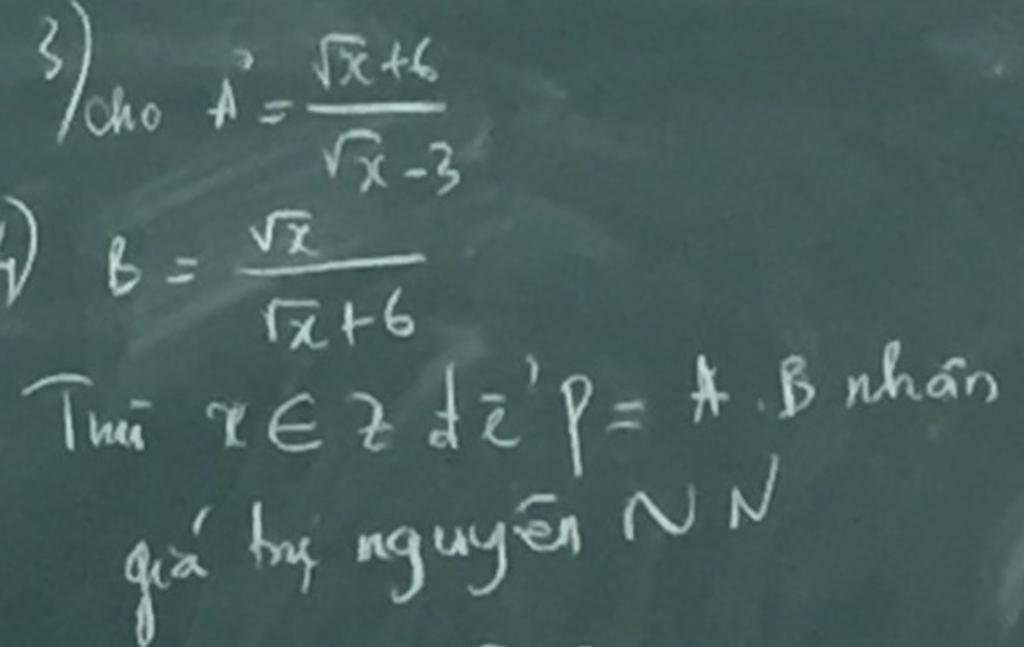 3) cho A = (√x+6)/(√x-3)
4) B = √x/(√x+6)
Tìm x ∈ Z để P = A.B nhận
giá trị nguyên NN